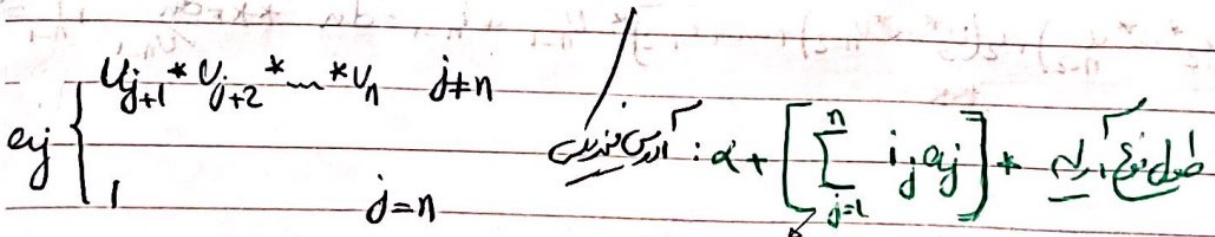 a_j { u_{j+1} * u_{j+2} * ... * u_n   j≠n
1   j=n
آدرس فیزیکی : α + [ Σ_{j=1}^{n} i_j a_j ] * طول نوع آرایه